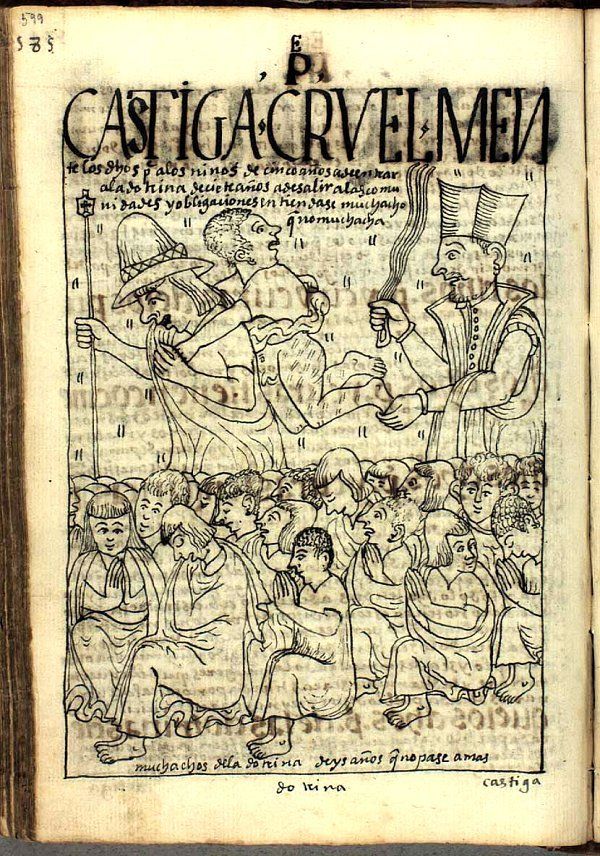 599
585
E
P
CASTIGA·CRVEL·MEN
te los dhos p̃ a los niños de cinco años a de entrar
a la dotrina de ciete años a de salir a las comu
nidades y obligaciones entiendase muchacho
q̃ no muchacha
muchachos de la dotrina de ys años q̃ no pase a mas
dotrina
castiga